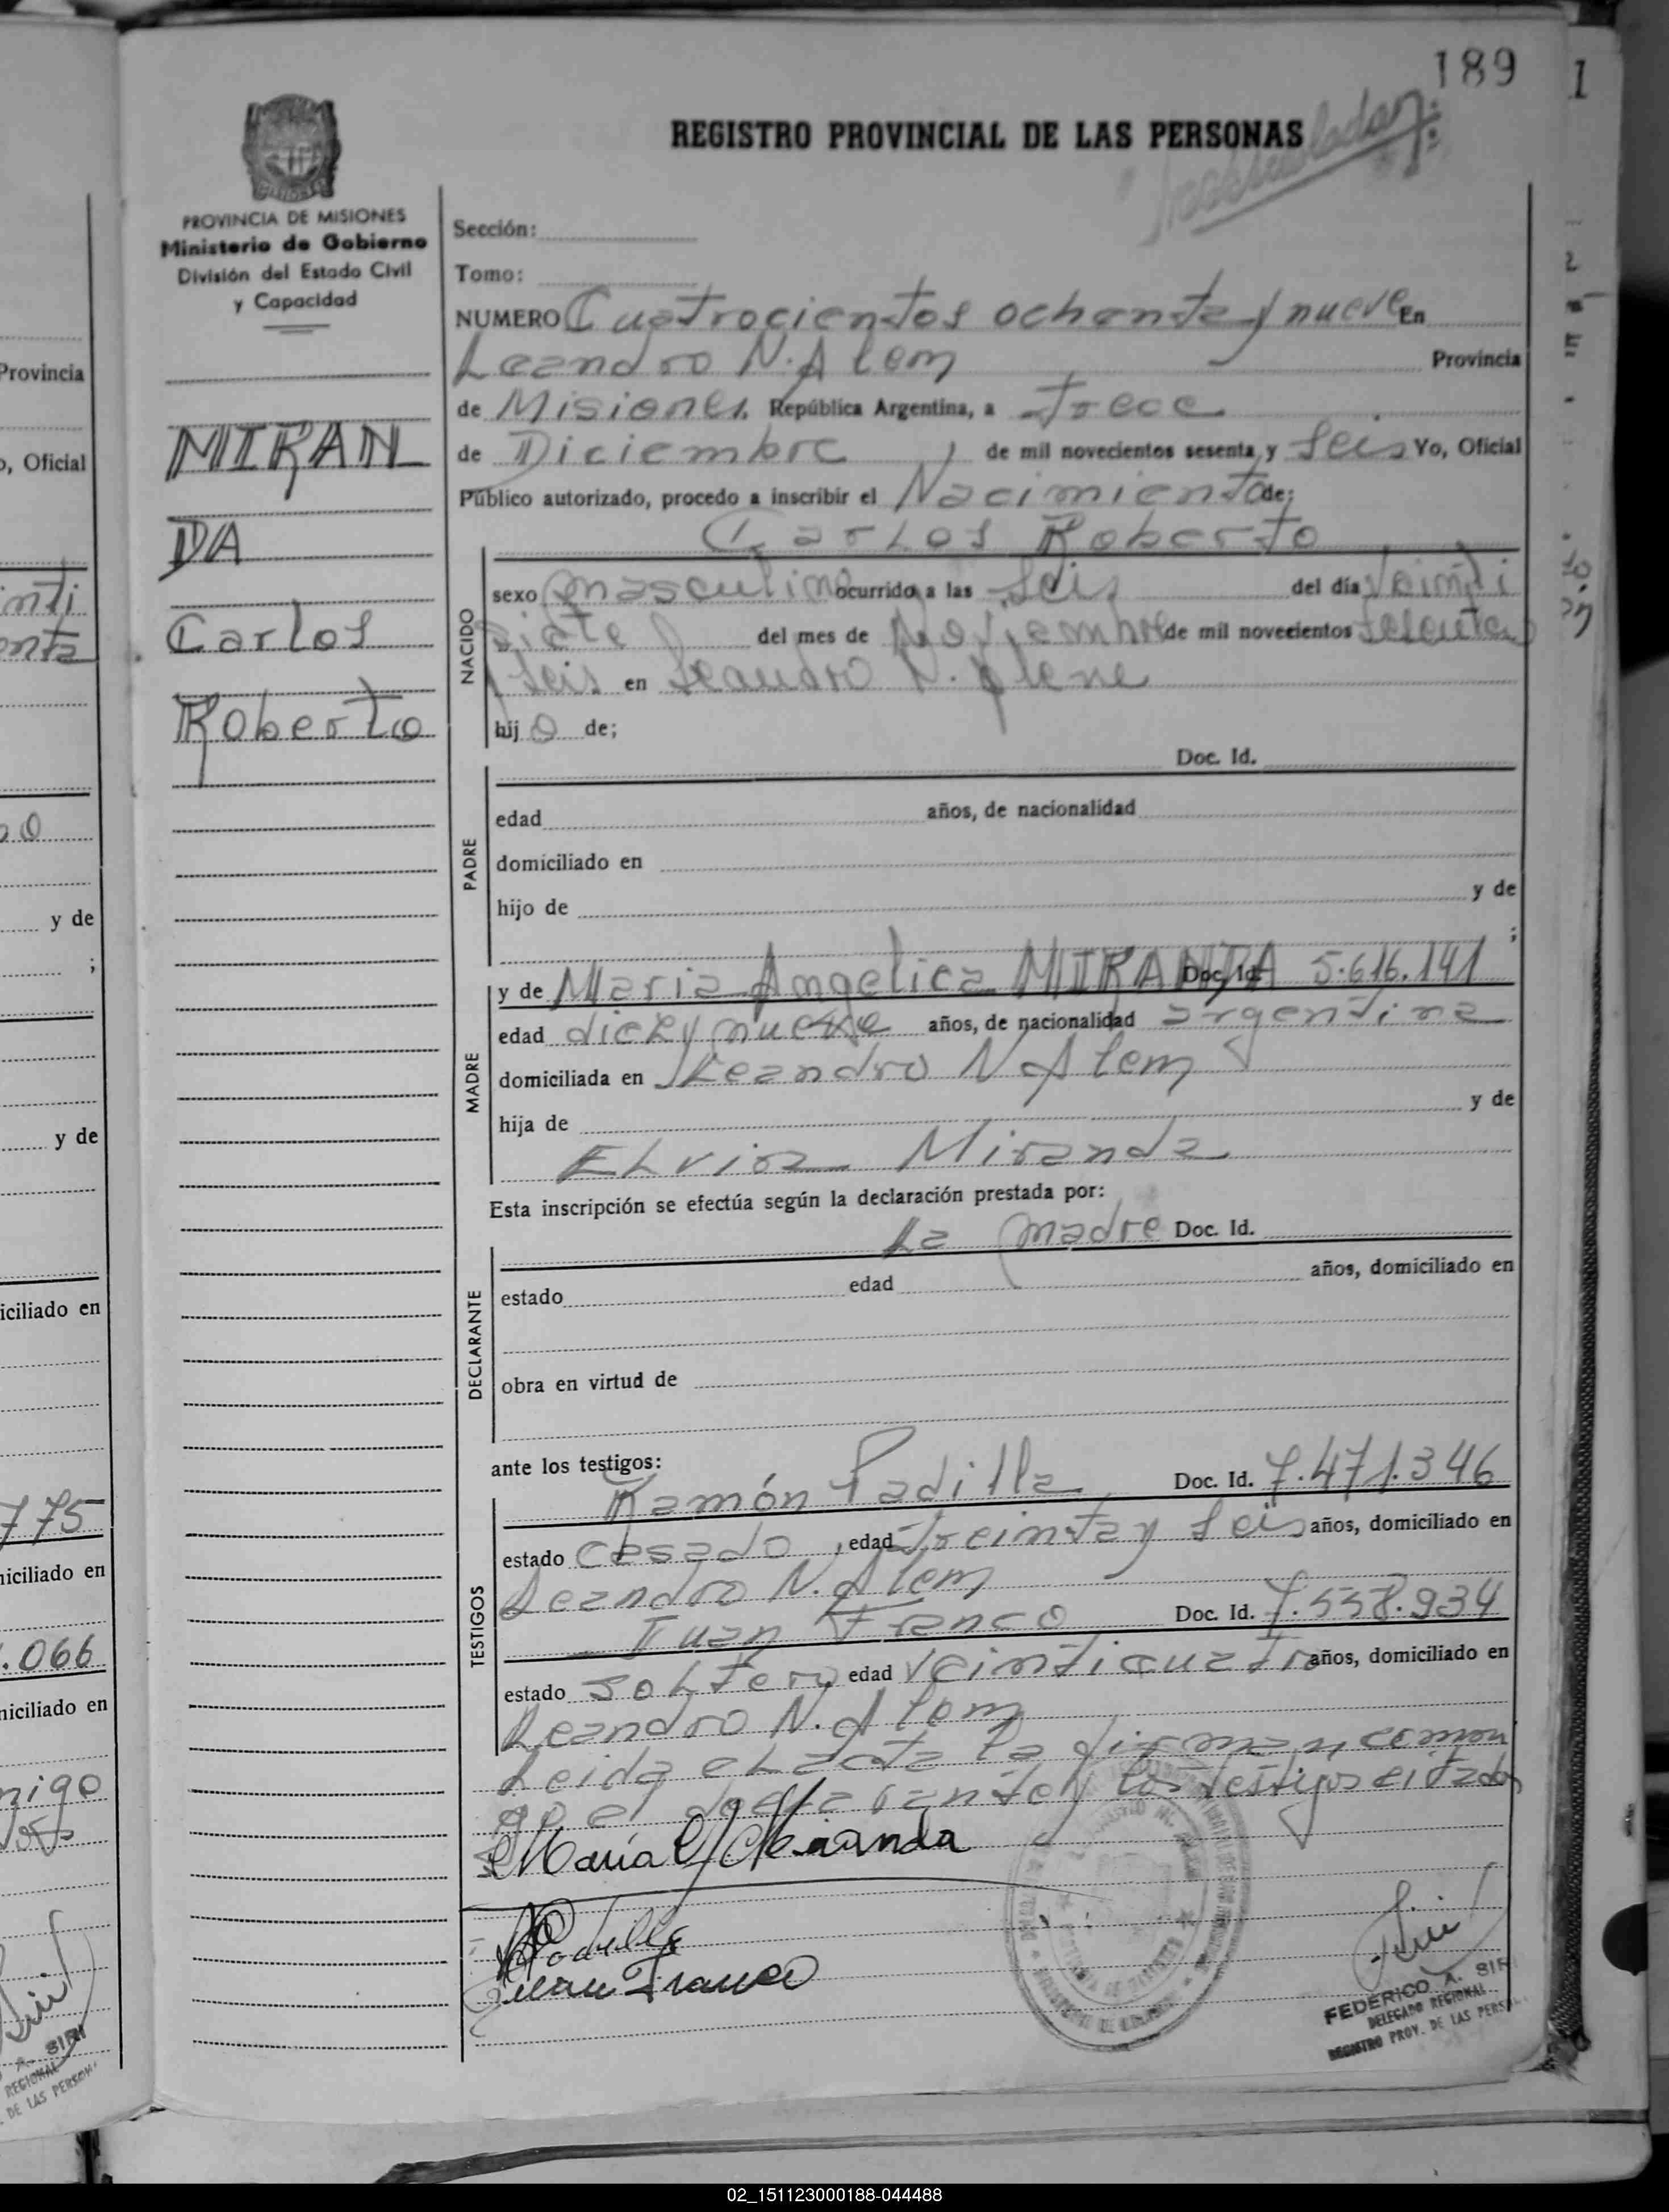 189
REGISTRO PROVINCIAL DE LAS PERSONAS
PROVINCIA DE MISIONES
Ministerio de Gobierno
División del Estado Civil
y Capacidad
MIRAN
DA
Carlos
Roberto
Sección:
Tomo:
NUMERO Cuatrocientos ochenta y nueve En
Leandro N. Alem Provincia
de Misiones, República Argentina, a Trece
de Diciembre, de mil novecientos sesenta y seis Yo, Oficial
Público autorizado, procedo a inscribir el Nacimiento de;
Carlos Roberto
NACIDO
sexo masculino ocurrido a las seis del día veinti
siete del mes de Noviembre de mil novecientos sesenta
y seis en Leandro N. Alem
hijo de;
Doc. Id.
PADRE
edad años, de nacionalidad
domiciliado en
hijo de y de
;
MADRE
y de Maria Angelica MIRANDA Doc. Id. 5.616.141
edad diez y nueve años, de nacionalidad argentina
domiciliada en Leandro N Alem
hija de y de
Elvira Miranda
Esta inscripción se efectúa según la declaración prestada por:
La madre Doc. Id.
DECLARANTE
estado edad años, domiciliado en
obra en virtud de
ante los testigos:
Ramón Padilla Doc. Id. 7.471.346
TESTIGOS
estado casado, edad treinta y seis años, domiciliado en
Leandro N. Alem
Juan Franco Doc. Id. 7.558.934
estado soltero edad veinticuatro años, domiciliado en
Leandro N. Alem
Leida el acta la firman conmi
go el declarante y los testigos citados
Maria Miranda
Padilla
Juan Franco
FEDERICO A. SIRI
DELEGADO REGIONAL
REGISTRO PROV. DE LAS PERS
Provincia
o, Oficial
inti
enta
y de
;
y de
iciliado en
775
niciliado en
.066
niciliado en
migo
A. SIRI
REGIONAL
DE LAS PERSON
02_151123000188-044488